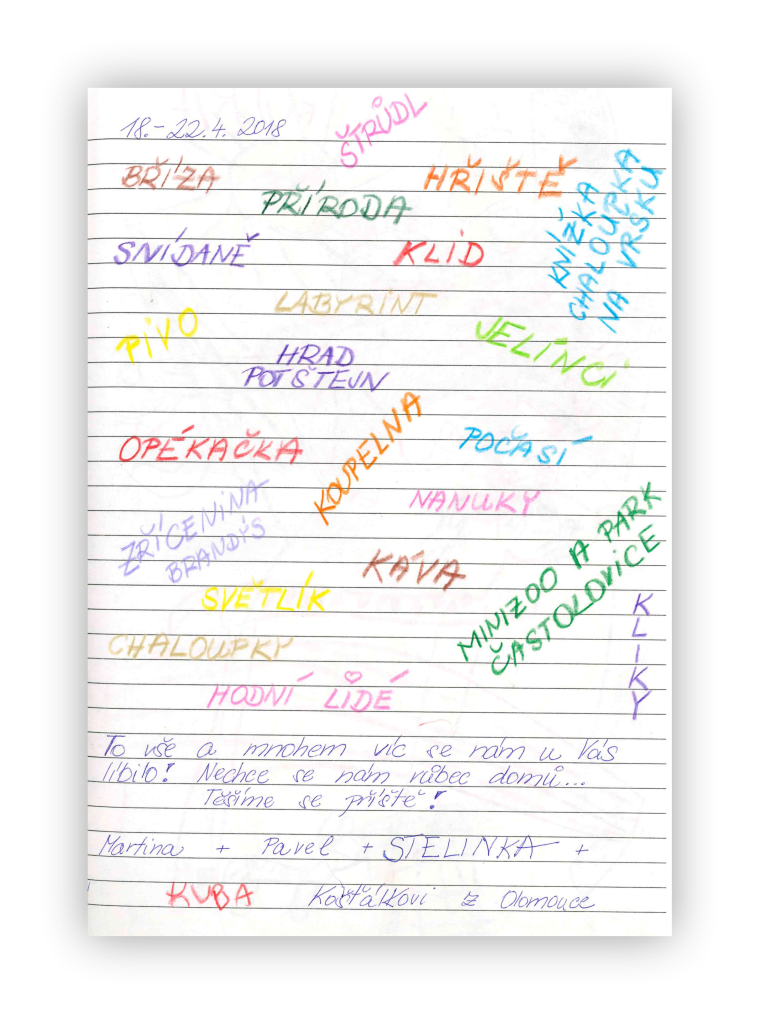 18.-22.4. 2018
ŠTRŮDL
BŘÍZA
PŘÍRODA
HŘIŠTĚ
KNÍŽKA
CHALOUPKA
NA VRŠKU
SNÍDANĚ
KLID
LABYRINT
PIVO
JELÍNCI
HRAD
POTŠTEJN
OPÉKAČKA
KOUPELNA
POČASÍ
NANUKY
ZŘÍCENINA
BRANDÝS
KÁVA
MINIZOO A PARK
ČASTOLOVICE
SVĚTLÍK
KLIKY
CHALOUPKY
HODNÍ LIDÉ
To vše a mnohem víc se nám u Vás
líbilo! Nechce se nám vůbec domů...
Těšíme se příště!
Martina + Pavel + STELINKA +
KUBA Košťálkovi z Olomouce